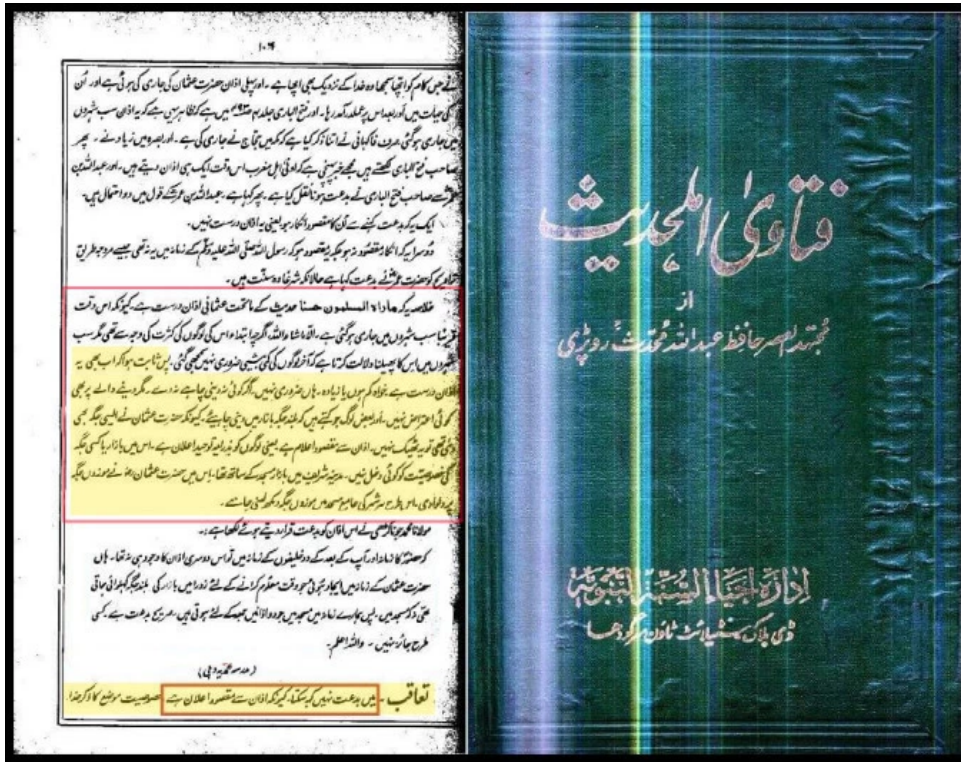 ۱۰۶
نے جس کام کو اچھا سمجھا وہ خدا کے نزدیک بھی اچھا ہے ۔ اور پہلی اذان حضرت عثمان کی جاری کی ہوئی ہے اور اُن
کی حیات میں اور بعد اس پر عملدرآمد رہا ۔ اور فتح الباری جلد میں ہے کہ ظاہر یہی ہے کہ یہ اذان سب شہروں
میں جاری ہوگئی صرف فاکہانی نے اتنا ذکر کیا ہے کہ مکہ میں حجاج نے جاری کی ہے ۔ اور بصرہ میں زیاد نے ۔ پھر
صاحب فتح الباری لکھتے ہیں مجھے خبر پہنچی ہے کہ ادنیٰ اہل مغرب اس وقت ایک ہی اذان دیتے ہیں ۔ اور عبداللہ بن
عمرؓ سے صاحب فتح الباری نے بدعت ہونا نقل کیا ہے ۔ پھر کہا ہے ۔ عبداللہ بن عمرؓ کے قول میں دو احتمال ہیں ۔
ایک یہ کہ بدعت کہنے سے اُن کا مقصود انکار ہو یعنی یہ اذان درست نہیں ۔
دُوسرا یہ کہ انکار مقصود نہ ہو بلکہ یہ مقصود ہو کہ رسول اللہ صلی اللہ علیہ وسلم کے زمانہ میں یہ نہ تھی جیسے مروجہ طریق
تراویح کو حضرت عمرؓ نے بدعت کہا ہے حالانکہ شرعاً وہ سنّت ہیں ۔
خلاصہ یہ کہ مارأہ المسلمون حسنا حدیث کے ماتحت عثمانی اذان درست ہے ۔ کیونکہ اس وقت
تقریباً سب شہروں میں جاری ہوگئی ہے ۔ الّا ماشاء اللہ ، اگرچہ ابتداء اس کی لوگوں کی کثرت کی وجہ سے تھی مگر سب
شہروں میں اس کا پھیلنا دلالت کرتا ہے کہ آخر لوگوں کی کمی بیشی ضروری نہیں سمجھی گئی ۔ پس ثابت ہوا کہ اب بھی یہ
اذان درست ہے ۔ خواہ کم ہوں یا زیادہ ۔ ہاں ضروری نہیں ۔ اگر کوئی نہ دینی چاہے نہ دے ۔ مگر دینے والے پر بھی
کوئی اعتراض نہیں ۔ اور بعض لوگ جو کہتے ہیں کہ بلند جگہ بازار میں دینی چاہئے ۔ کیونکہ حضرت عثمان نے ایسی جگہ بھی
دی تھی تو یہ ٹھیک نہیں ۔ اذان سے مقصود اعلام ہے یعنی لوگوں کو بذریعہ توحید اعلان ہے ۔ اس میں بازار یا کسی جگہ
کی خصوصیت کو کوئی دخل نہیں ۔ مدینہ شریف میں بازار مسجد کے ساتھ تھا ۔ اس میں حضرت عثمان رضؓ نے موزوں جگہ
پر دلوادی ۔ اس طرح ہر شہر کی جامع مسجد میں موزوں جگہ دیکھ لینی چاہے ۔
مولانا محمد جوناگڑھی نے اس اذان کو بدعت قرار دیتے ہوئے لکھا ہے :۔
کہ حضورؐ کا زمانہ اور آپ کے بعد کے دو خلیفوں کے زمانہ میں تو اس دوسری اذان کا وجود ہی نہ تھا ۔ ہاں
حضرت عثمان کے زمانہ میں ایجاد ہوئی جو وقت معلوم کرانے کے لئے زوراء میں بازار کی بلند جگہ کہلوائی جاتی
تھی نہ کہ مسجد میں ۔ پس ہمارے زمانہ میں مسجد میں جو دو اذانیں جمعہ کے لئے ہوتی ہیں ۔ صریح بدعت ہے کسی
طرح جائز نہیں ۔ واللہ اعلم ۔
تعاقب ۔ میں بدعت نہیں کہہ سکتا ۔ کیونکہ اذان سے مقصود اعلان ہے خصوصیت موضع کا ذکر
فتاویٰ اہلحدیث
از
مجتہد العصر حافظ عبداللہ محدث روپڑی
إدارة إحياء السنة النبوية
ڈی بلاک سٹیلائٹ ٹاؤن سرگودھا